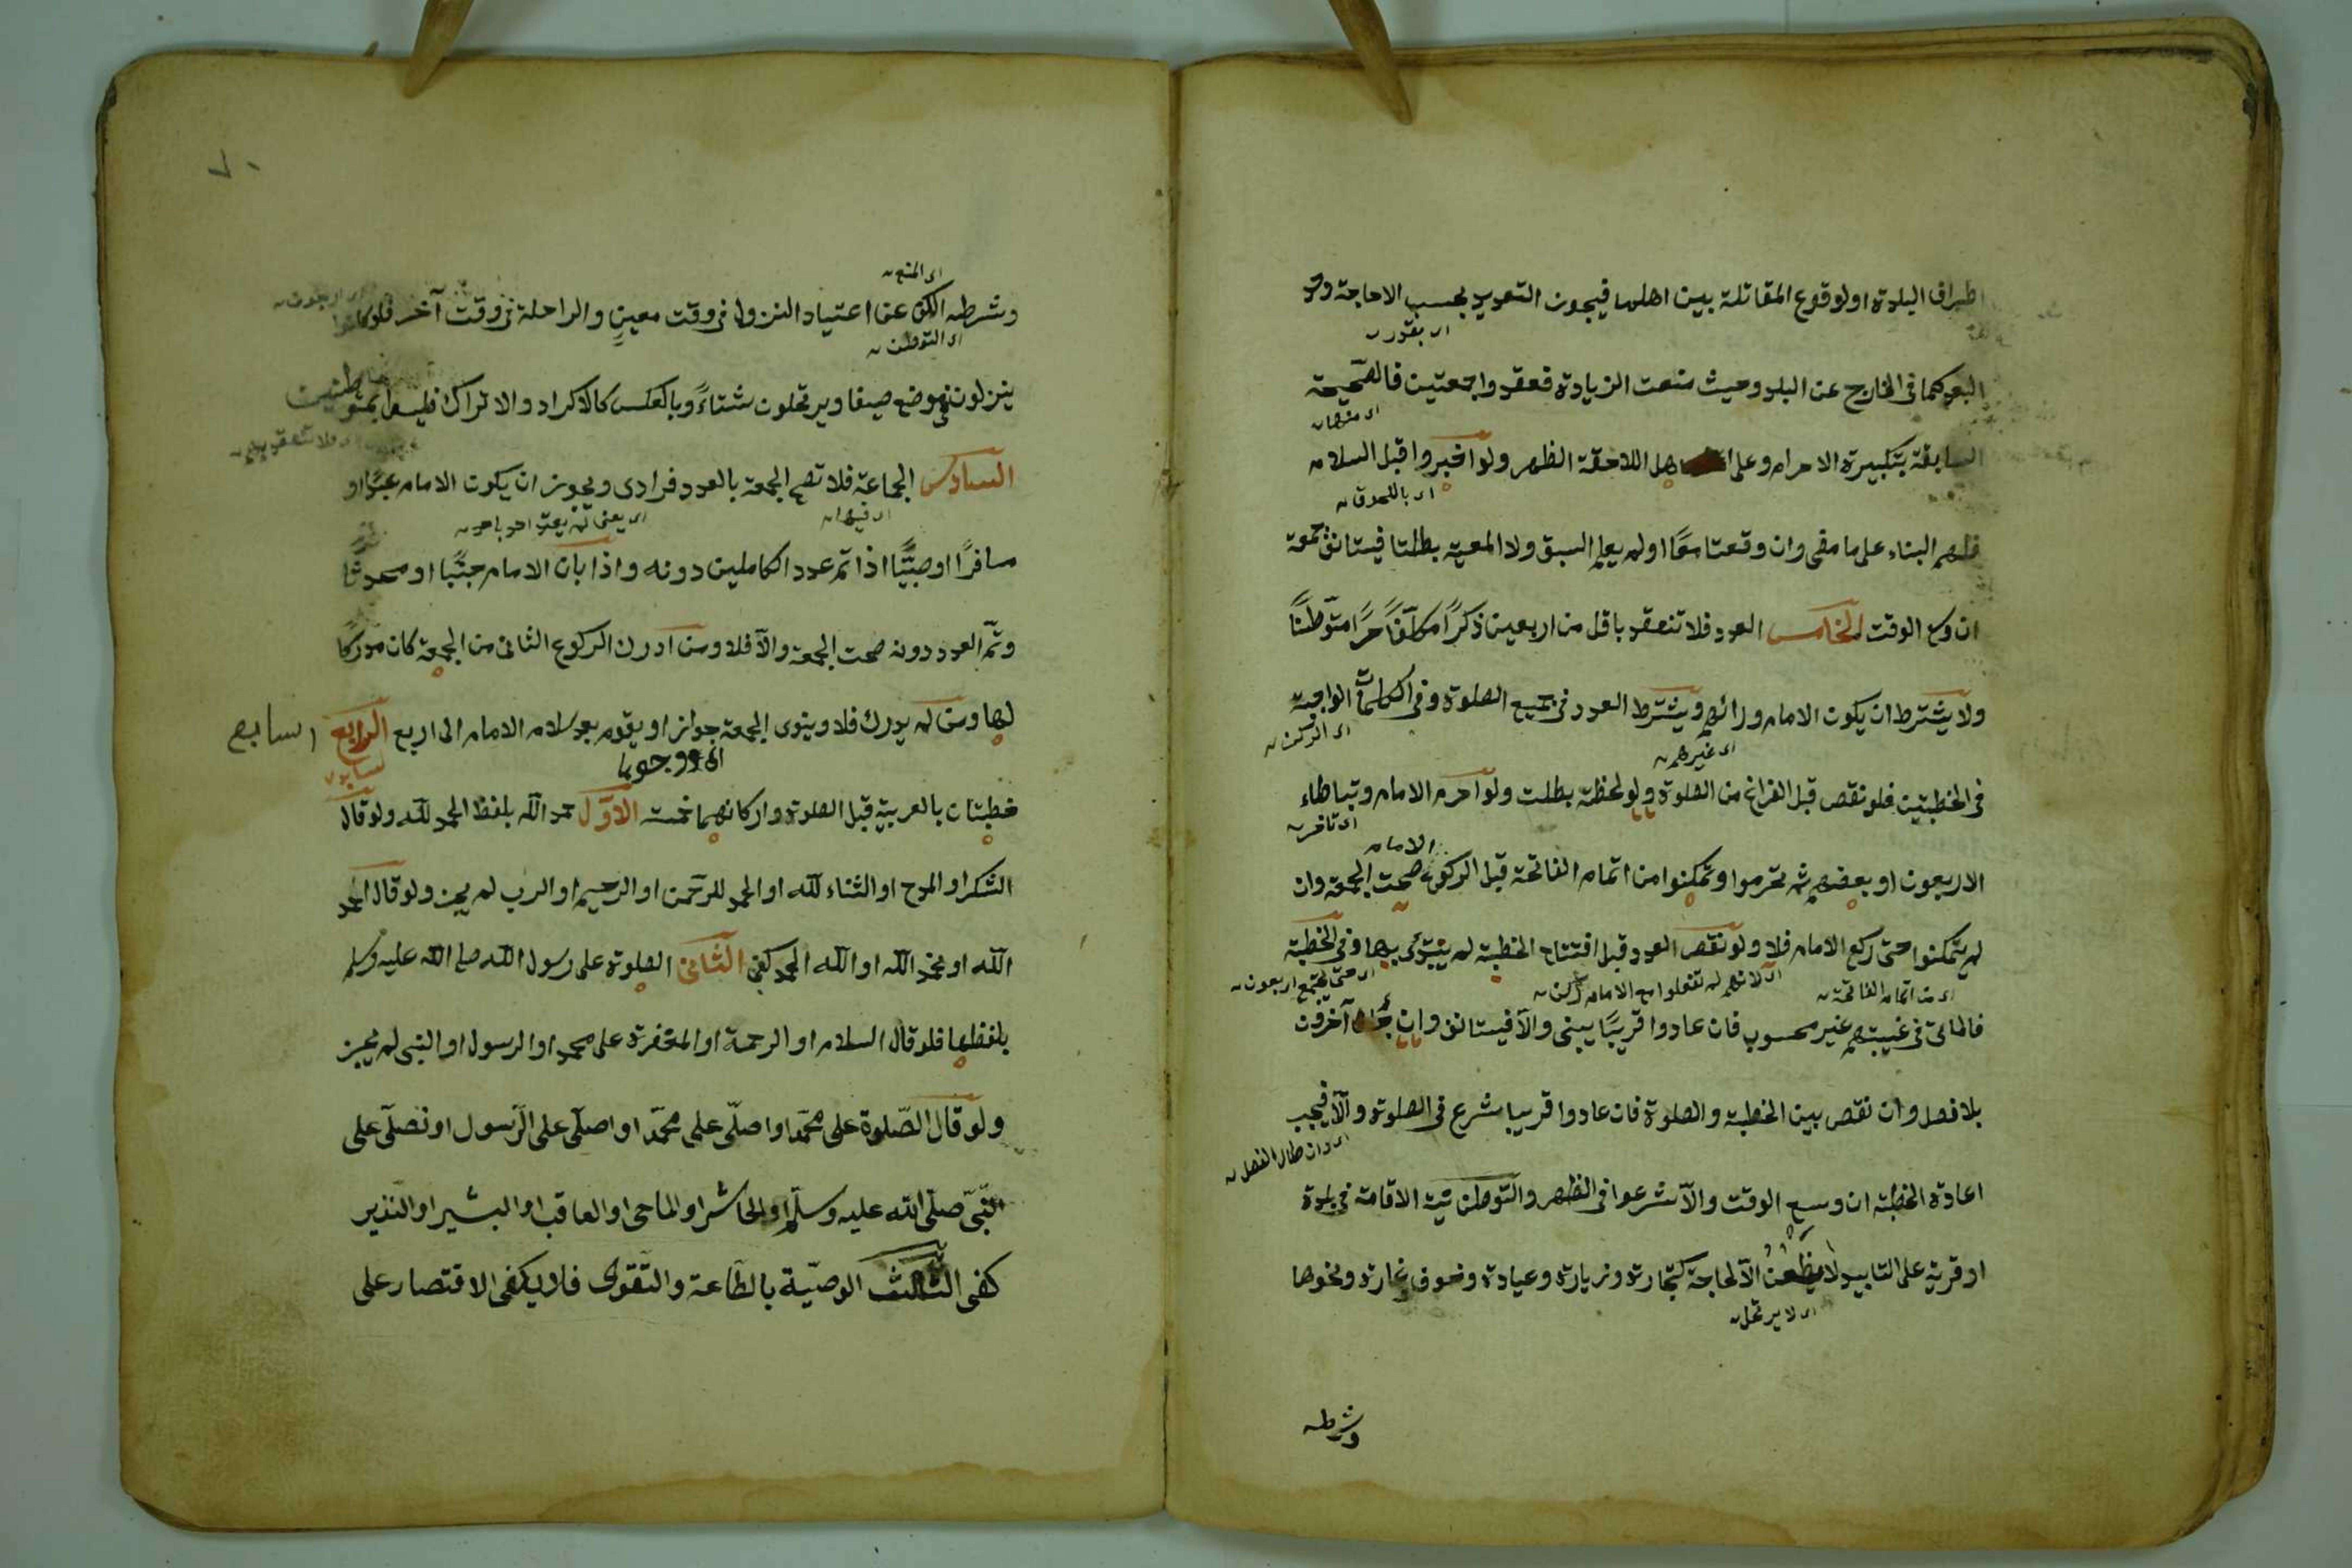 اطراف البلدة او لوقوع المقاتلة بين اهلها فيجوز التعديد بحسب الحاجة وحد
اى بقدر
البعد كما فى الخارج عن البلد وحيث منعت الزيادة فعقدوا جمعتين فالصحيحة
اى منهما
السابقة بتكبيرة الاحرام وعلى اهل اللاحقة الظهر ولو اخبروا قبل السلام
اى باللحوق
فلهم البناء على ما مضى وان وقعتا معًا او لم يعلم السبق ولا المعية بطلتا فيستانف جمعة
ان وسع الوقت الخامس العدد فلا تنعقد باقل من اربعين ذكرًا مكلّفًا حرًا متوطّنًا
ولا يشترط ان يكون الامام ورائهم ويشترط العدد فى جميع الصلوة وفى الكلمات الواجبة
اى غيرهم
اى الركن
فى الخطبتين فلو نقص قبل الفراغ من الصلوة ولو لحظة بطلت ولو احرم الامام وتباطاء
اى تاخر
الامام
الاربعون او بعضهم ثم تحرموا وتمكنوا من اتمام الفاتحة قبل الركوع صحت الجمعة وان
لم يتمكنوا حتى ركع الامام فلا ولو نقص العدد قبل افتتاح الخطبة لم يبتدئ بها وفى الخطبة
اى من اتمام الفاتحة
اى لانهم لم تفعلوا مع الامام ركن
اى حتى يجتمع اربعون
فالماتى فى غيبتهم غير محسوب فان عادوا قريبًا يبنى والّا فيستانف وان جاء آخرون
بلا فصل وان نقص بين الخطبة والصلوة فان عادوا قريبا شرع فى الصلوة والّا فيجب
اى وان طال الفصل
اعادة الخطبة ان وسع الوقت والّا شرعوا فى الظهر والتّوطن نيّة الاقامة فى بلدة
او قرية على التابيد لا يظعن الّا لحاجة كتجارة وزيارة وعيادة وخوف غارة ونحوها
اى لا يرتحل
وشرطه
٧٠
اى المنع
وشرطه الكف عن اعتياد النزول فى وقت معين والراحلة فى وقت آخر فلو كانوا
اى التوطن
ينزلون فى موضع صيفا ويرتحلون شتاءً وبالعكس كالاكراد والاتراك فليسوا بمتوطنين
فلا تنعقد بهم
السادس الجماعة فلا تصح الجمعة بالعدد فرادى ويجوز ان يكون الامام عبدًا او
اى فيها
مسافرًا او صبيًّا اذا تمّ عدد الكاملين دونه واذا بان الامام جنبًا او محدثا
وتمّ العدد دونه صحت الجمعة والّا فلا ومن ادرك الركوع الثانى من الجمعة كان مدركا
لها ومن لم يدرك فلا وينوى الجمعة جوازا ويقوم بعد سلام الامام الى اربع الرابع
السابع
اى ووجوبا
خطبتان بالعربية قبل الصلوة واركانهما خمسة الاوّل حمد الله بلفظ الحمد لله ولو قال
الشكر او المدح او الثناء لله او الحمد للرحمن او الرحيم او الرب لم يجز ولو قال احمد
الله او نحمد الله او الله الحمد كفى الثانى الصلوة على رسول الله صلى الله عليه وسلم
بلفظها فلو قال السلام او الرحمة او المغفرة على محمد او الرسول او النبى لم يجز
ولو قال الصّلوة على محمّد او اصلّى على محمّد او اصلّى على الرّسول او نصلّى على
النّبىّ صلّى الله عليه وسلّم او الحاشر او الماحى او العاقب او البشير او النّذير
كفى الثالث الوصيّة بالطّاعة والتّقوى فلا يكفى الاقتصار على